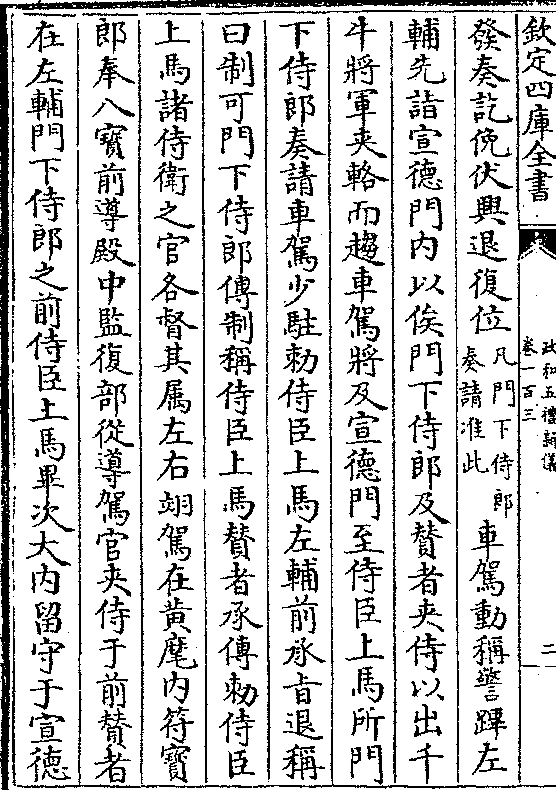 欽定四庫全書
政和五禮新儀
卷一百三
二
發奏訖俛伏興退復位凡門下侍郎奏請准此車駕動稱警蹕左
輔先詣宣德門内以俟門下侍郎及賛者夾侍以出千
牛將軍夾輅而趨車駕將及宣德門至侍臣上馬所門
下侍郎奏請車駕少駐勑侍臣上馬左輔前承旨退稱
曰制可門下侍郎傳制稱侍臣上馬賛者承傳勑侍臣
上馬諸侍衛之官各督其属左右翊駕在黄麾内符寶
郎奉八寳前導殿中監復部從導駕官夾侍于前賛者
在左輔門下侍郎之前侍臣上馬畢次大内留守于宣德